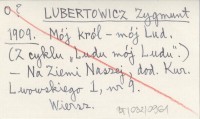 LUBERTOWICZ Zygmunt
1909. Mój król – mój Lud.
(Z cyklu „Ludu mój Ludu".)
– Na Ziemi Naszej, dod. Kur.
Lwowskiego 1, nr 9.
Wiersz.